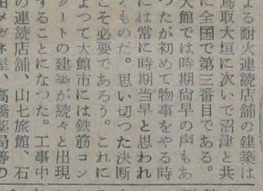 よる耐火連続店舗の建築は
鳥取大垣に次いで沼津と共
に全国で第三番目である。
大館では時期尚早の声もあ
つたが初めて物事をやる時
には常に時期尚早と思われ
るものだ。思い切つた決断
こそ必要であろう。これに
よつて大館市には鉄筋コン
クートの建築が続々と出現
することになつた。工事中
の連続店舗、山七旅館、石
田メガネ屋、高橋薬局等の